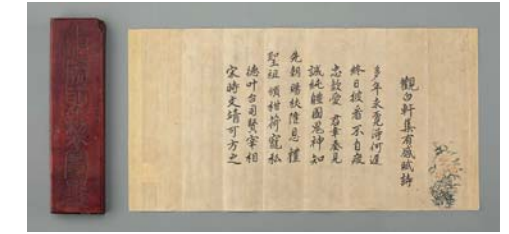 觀白軒集有感賦詩
多年未覓淂何遲
終日披看不自疲
愛 君 見
誠純體國鬼神知
先朝賜杖隆恩禮
聖祖頒柑荷寵私
德叶台司賢宰相
宋時文靖可方之